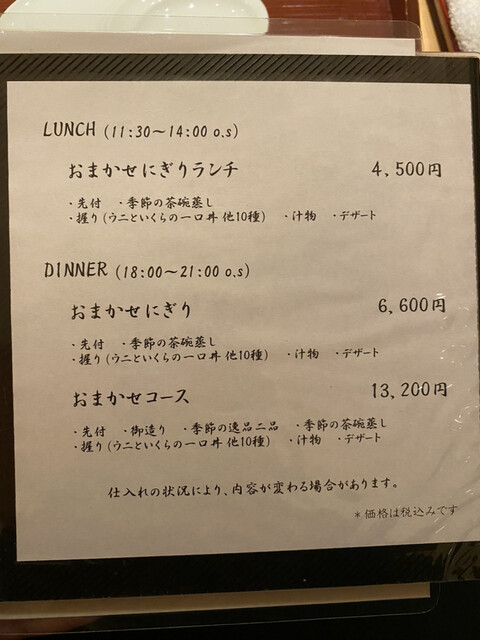 LUNCH (11:30～14:00 o.s)
おまかせにぎりランチ 4,500円
・先付 ・季節の茶碗蒸し
・握り(ウニといくらの一口丼 他10種) ・汁物 ・デザート
DINNER (18:00～21:00 o.s)
おまかせにぎり 6,600円
・先付 ・季節の茶碗蒸し
・握り(ウニといくらの一口丼 他10種) ・汁物 ・デザート
おまかせコース 13,200円
・先付 ・御造り ・季節の逸品二品 ・季節の茶碗蒸し
・握り(ウニといくらの一口丼 他10種) ・汁物 ・デザート
仕入れの状況により、内容が変わる場合があります。
＊価格は税込みです